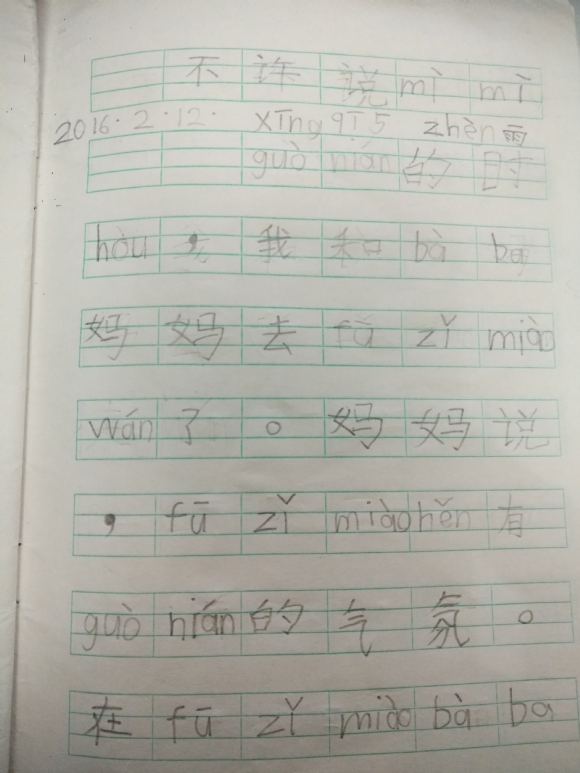 不许说mì mì
2016.2.12. xīng qī 5 zhèn雨
guò nián的时
hòu,我和bà ba
妈妈去fū zǐ miào
wán了。妈妈说
,fū zǐ miào hěn有
guò nián的气氛。
在fū zǐ miào bà ba